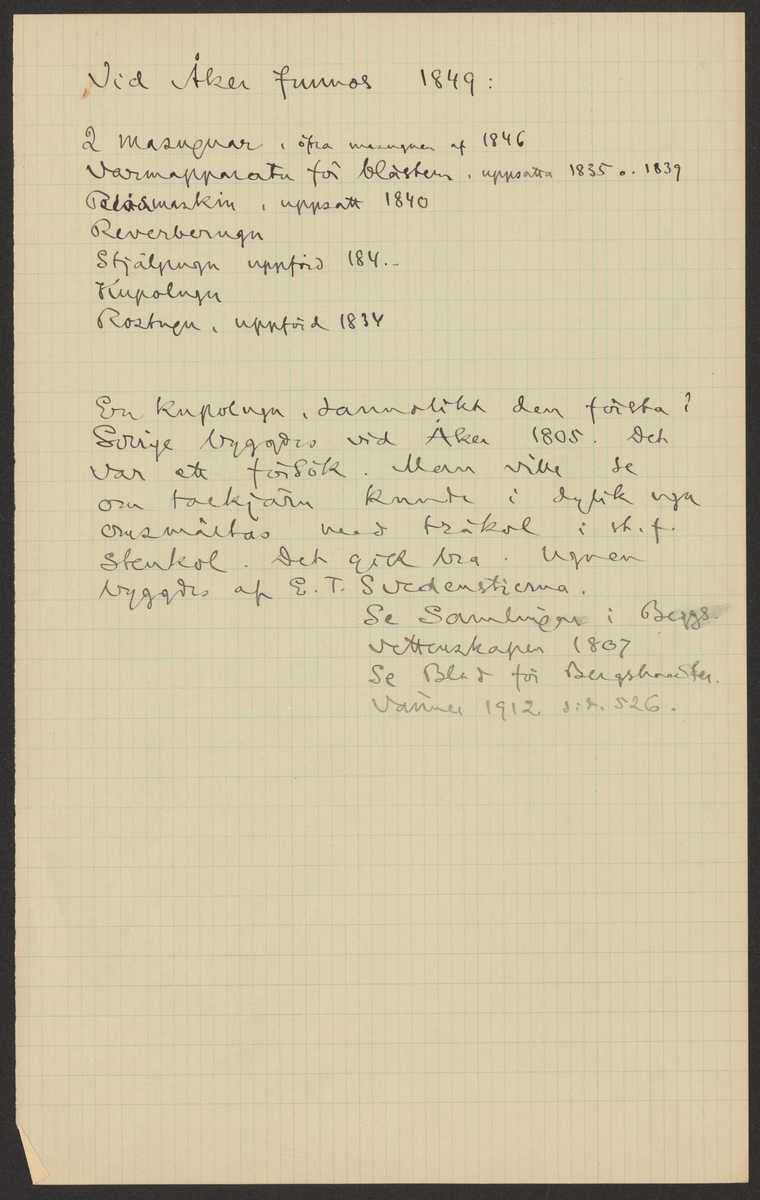 Vid Åker funnos 1849:
2 masugnar, öfra masugnen af 1846
Varmapparater för blästern, uppsatta 1835 o. 1839
Blåsmaskin, uppsatt 1840
Reverberugn
Stjälpugn uppförd 184.-
Kupolugn
Rostugn, uppförd 1834
En kupolugn, sannolikt den första i
Sverige byggdes vid Åker 1805. Det
var ett försök. Man ville se
om tackjärn kunde i dylik ugn
omsmältas med träkol i st. f.
stenkol. Det gick bra. Ugnen
byggdes af E. T. Svedenstierna.
Se Samlingar i Bergs-
vettenskapen 1807
Se Blad för Bergshandter.
Vänner 1912 sid. 526.